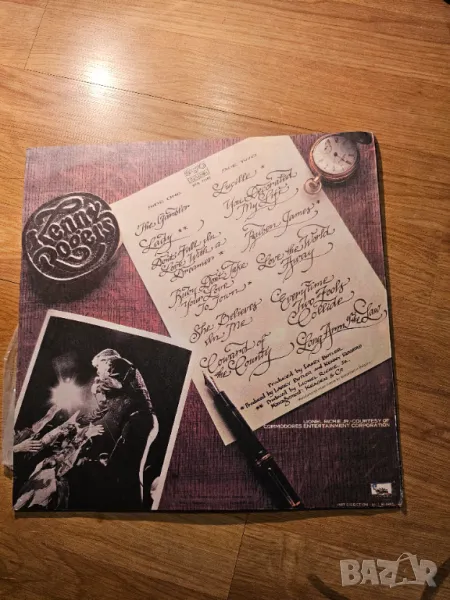 Kenny
Rogers
The Gambler
Lady **
Don't Fall In
Love With a
Dreamer *
Ruby Don't Take
Your Love
To Town *
She Believes
In Me
Coward of
the County
Lucille *
You Decorated
My Life
Reuben James *
Love the World
Away
Every Time
Two Fools
Collide
Long Arm of the Law
Produced by LARRY BUTLER
* Produced by LARRY BUTLER and KENNY ROGERS
** Produced by LIONEL RICHIE, JR.
Management: KRAGEN & CO
LIONEL RICHIE, JR. COURTESY OF
COMMODORES ENTERTAINMENT CORPORATION
BAZAR